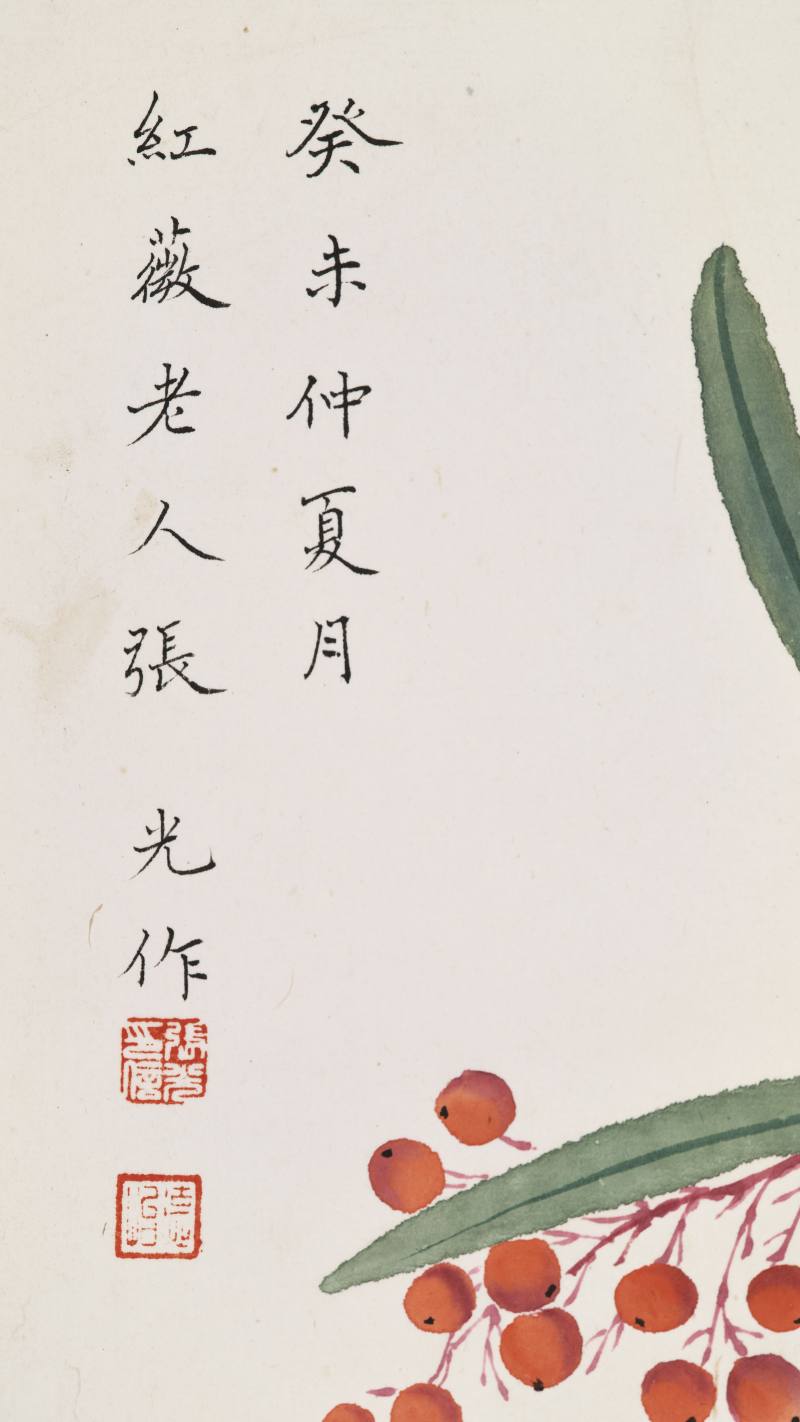 癸未仲夏月
紅薇老人張光作
張光印信